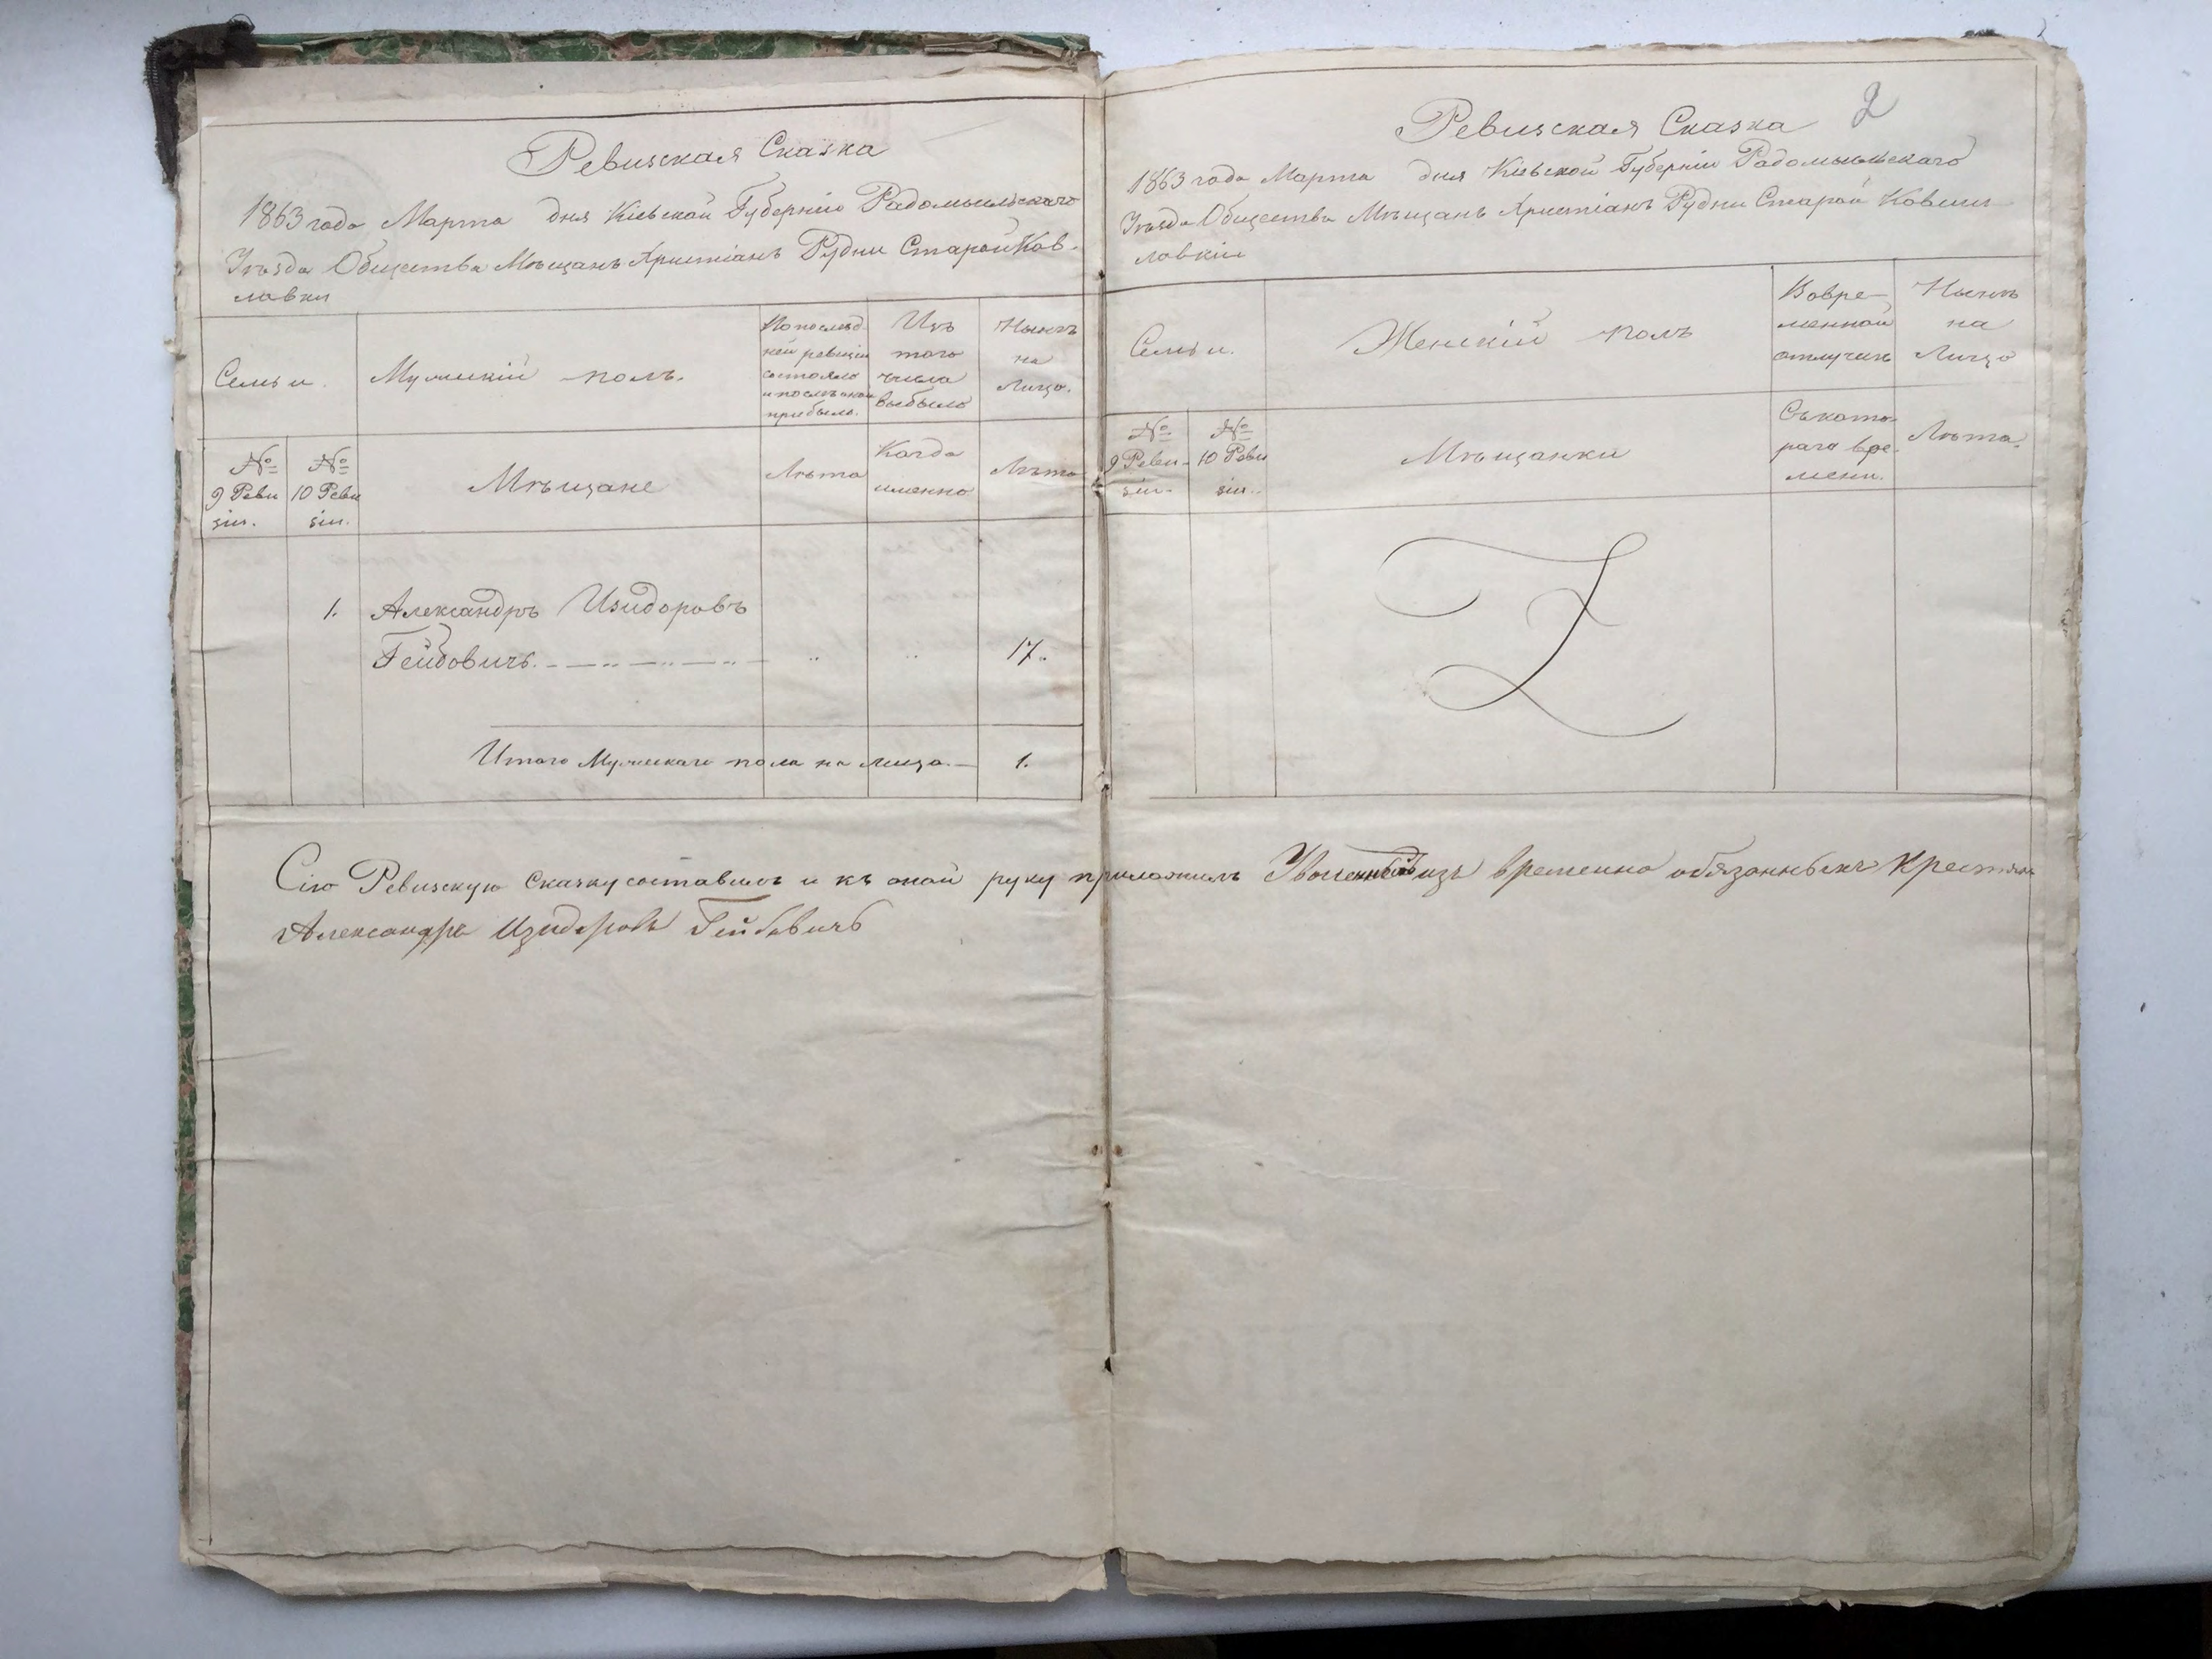 Ревизская Сказка
1863 года Марта дня Кіевской Губерніи Радомысльскаго
Уѣзда Общества Мѣщанъ Христіанъ Рудни Старой Ков-
лавки
Семьи.
Мужскій полъ.
По послѣд-
ней ревизіи
состояло
и послѣ оной
прибыло.
Изъ
того
числа
выбыло
Нынѣ
на
Лицо.
№
9 Реви
зіи.
№
10 Реви
зіи.
Мѣщане
Лѣта
Когда
именно
Лѣта
1. Александръ Изидоровъ
Гейбовичъ. 17.
Итого Мужскаго пола на лицо. 1.
2
Ревизская Сказка
1863 года Марта дня Кіевской Губерніи Радомысльскаго
Уѣзда Общества Мѣщанъ Христіанъ Рудни Старой
Семьи.
Женскій полъ
Вовре-
менной
отлучкѣ
Нынѣ
на
Лицо
№
9 Реви-
зіи.
№
10 Реви
зіи.
Мѣщанки
Съ кото-
раго вре-
мени.
Лѣта.
Сію Ревизскую Сказку составилъ и къ оной руку приложилъ изъ временно обязанныхъ Крестьянъ
Александръ Изидоровъ Гейбовичъ